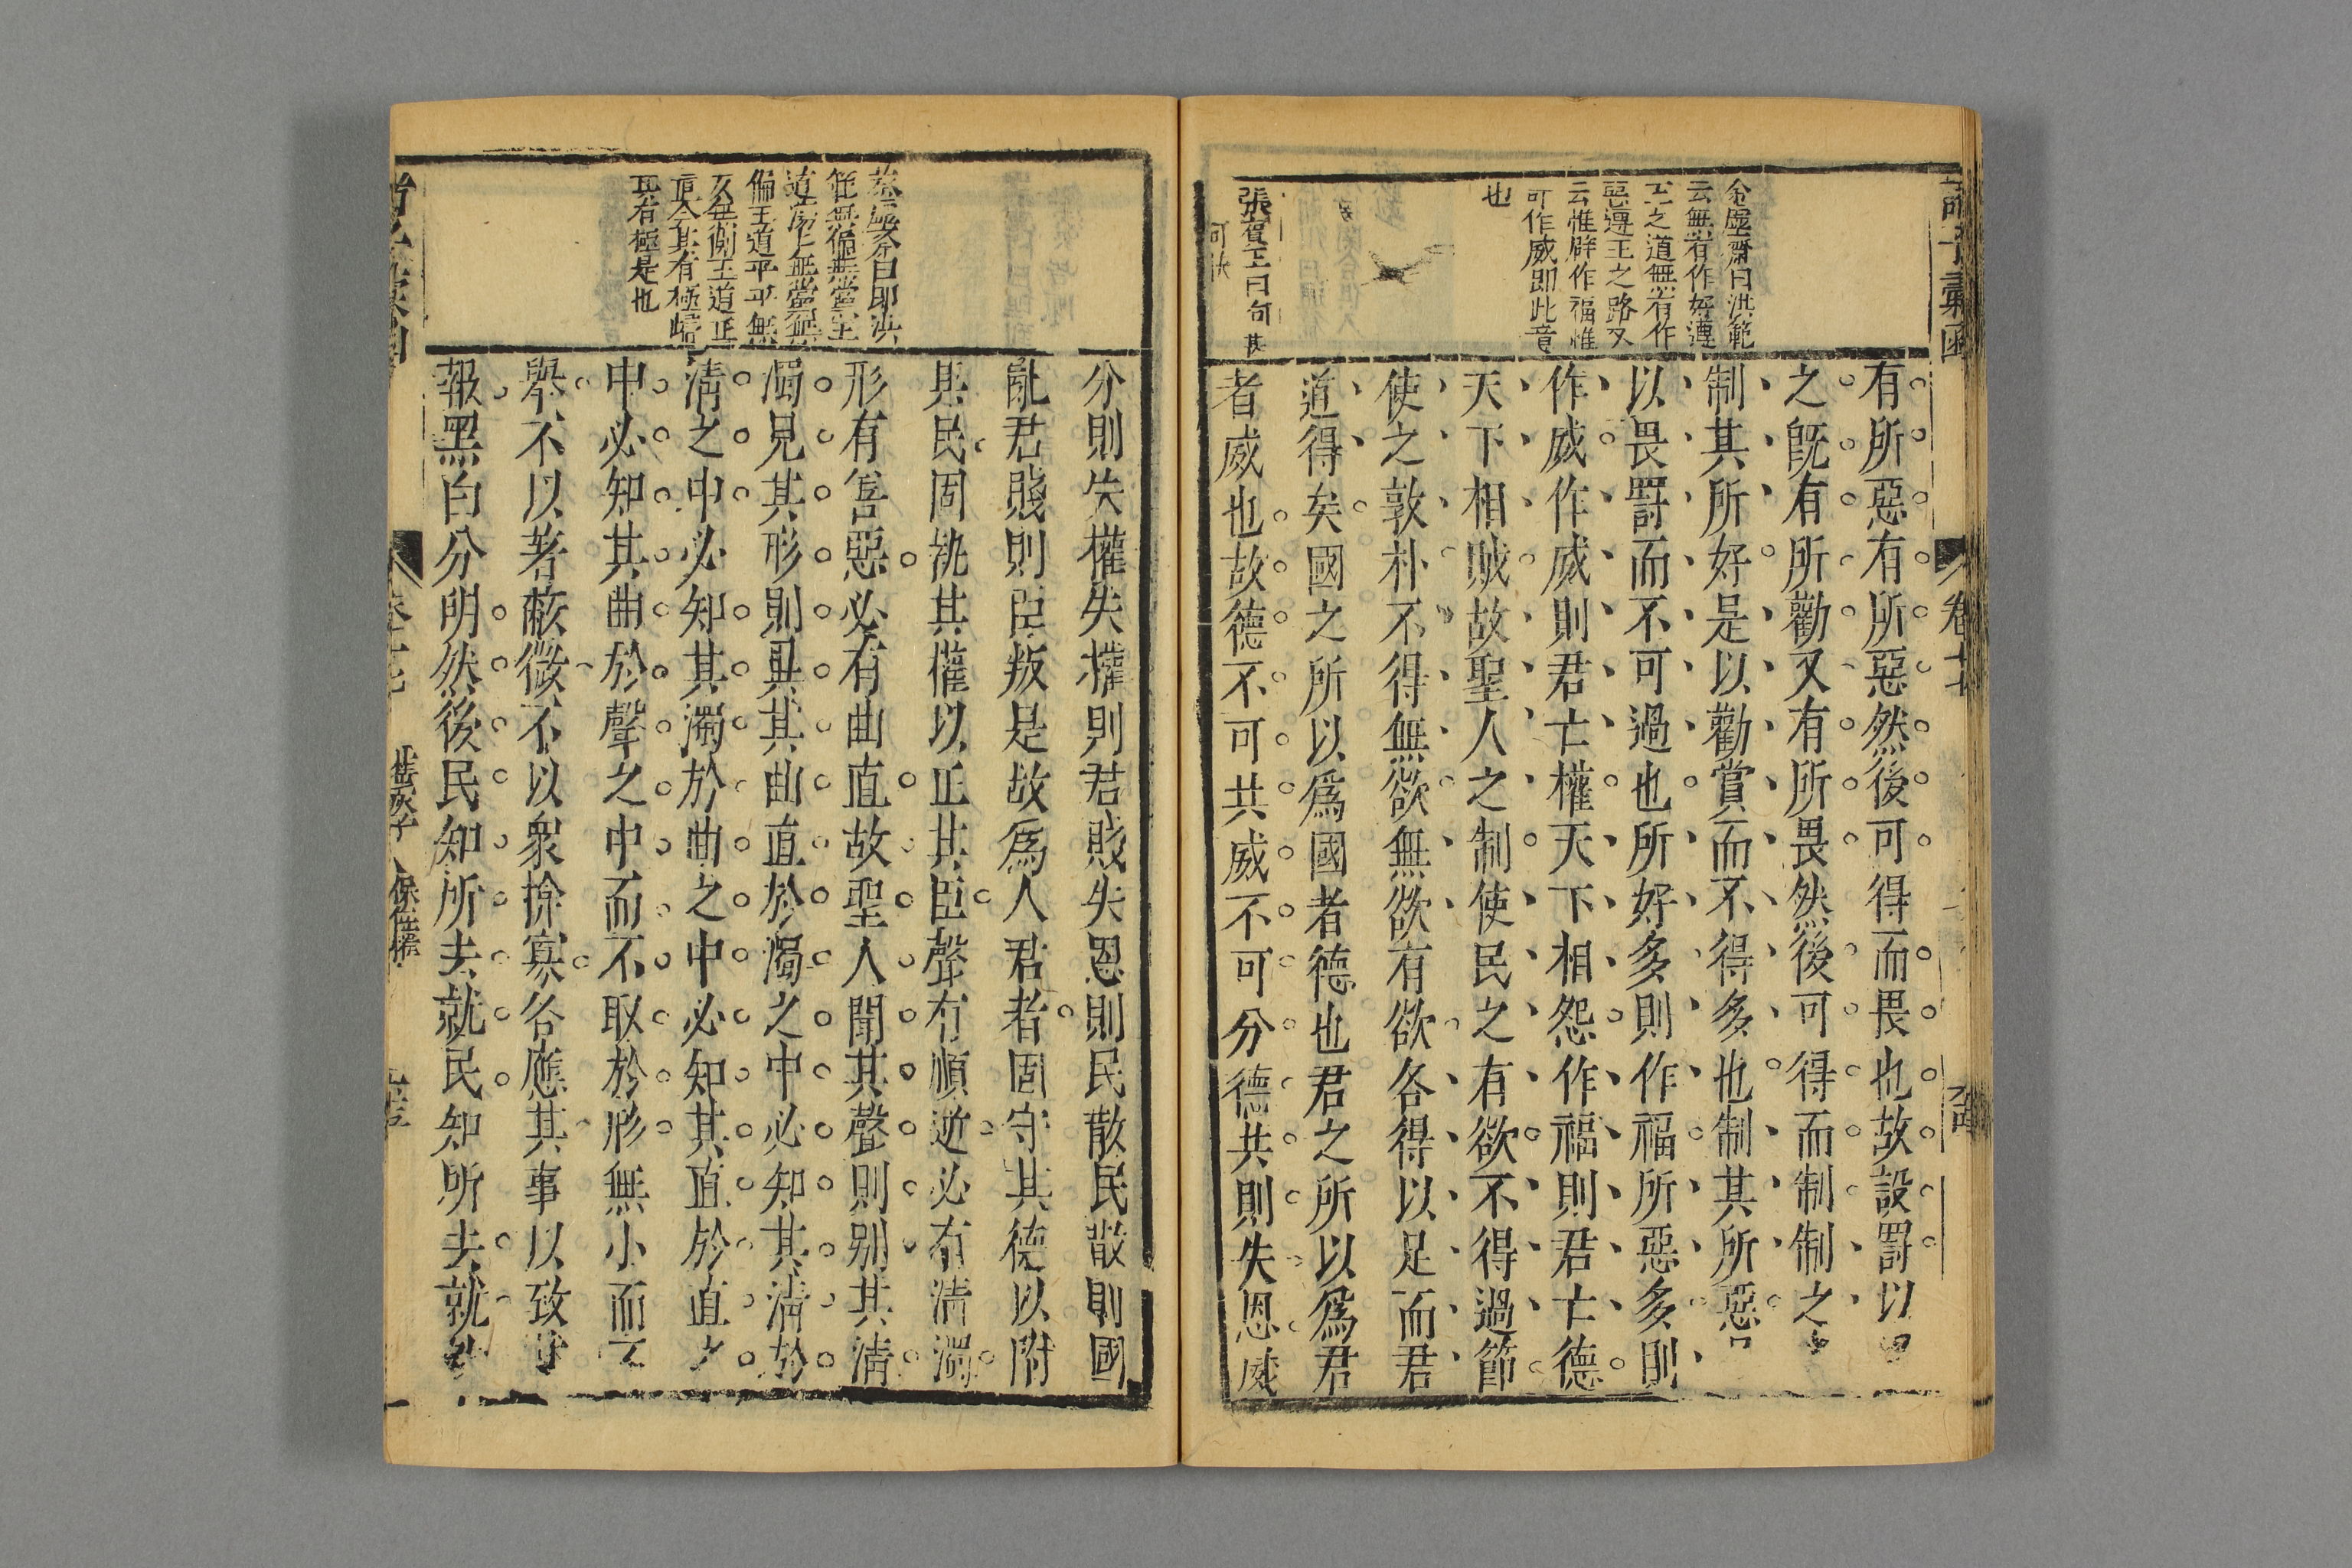 諸子彙函
卷十七
余虛齋曰洪範
云無有作好遵
王之道無有作
惡遵王之路又
云惟辟作福惟
可作威即此意
也
張賀工曰句甚
有所惡有所惡然後可得而畏也故設罰以
之旣有所勸又有所畏然後可得而制制之
制其所好是以勸賞而不得多也制其所惡
以畏罰而不可過也所好多則作福所惡多則
作威作威則君亡權天下相怨作福則君亡德
天下相賊故聖人之制使民之有欲不得過節
使之敦朴不得無欲無欲有欲各得以足而君
道得矣國之所以爲國者德也君之所以爲君
者威也故德不可共威不可分德共則失恩威
分則失權失權則君賤失恩則民散民散則國
亂君賤則臣叛是故爲人君者固守其德以附
其民固執其權以正其臣聲有順逆必有清濁
形有善惡必有曲直故聖人聞其聲則別其清
濁見其形則異其曲直於濁之中必知其清於
清之中必知其濁於曲之中必知其直於直
中必知其曲於聲之中而不取於形無小而不
舉不以著蔽微不以衆揜寡各應其事以致
報黑白分明然後民知所去就民知所去就
曰卽洪
範無偏無黨王
道蕩蕩無黨無
偏王道平平無
反無側王道正
直會其有極歸
其有極是也
卷十七